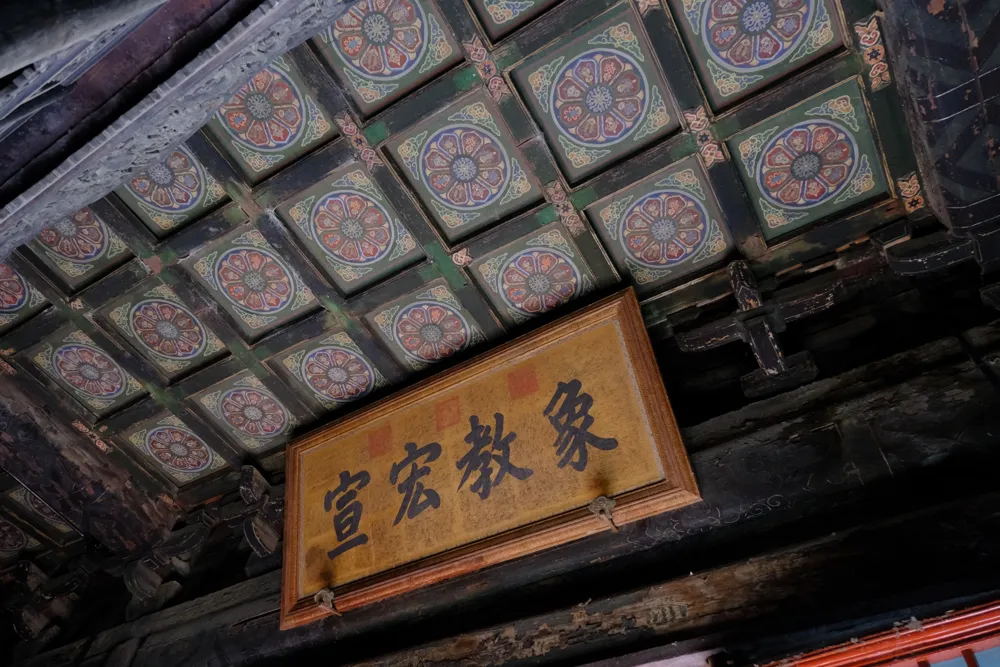 象教宏宣